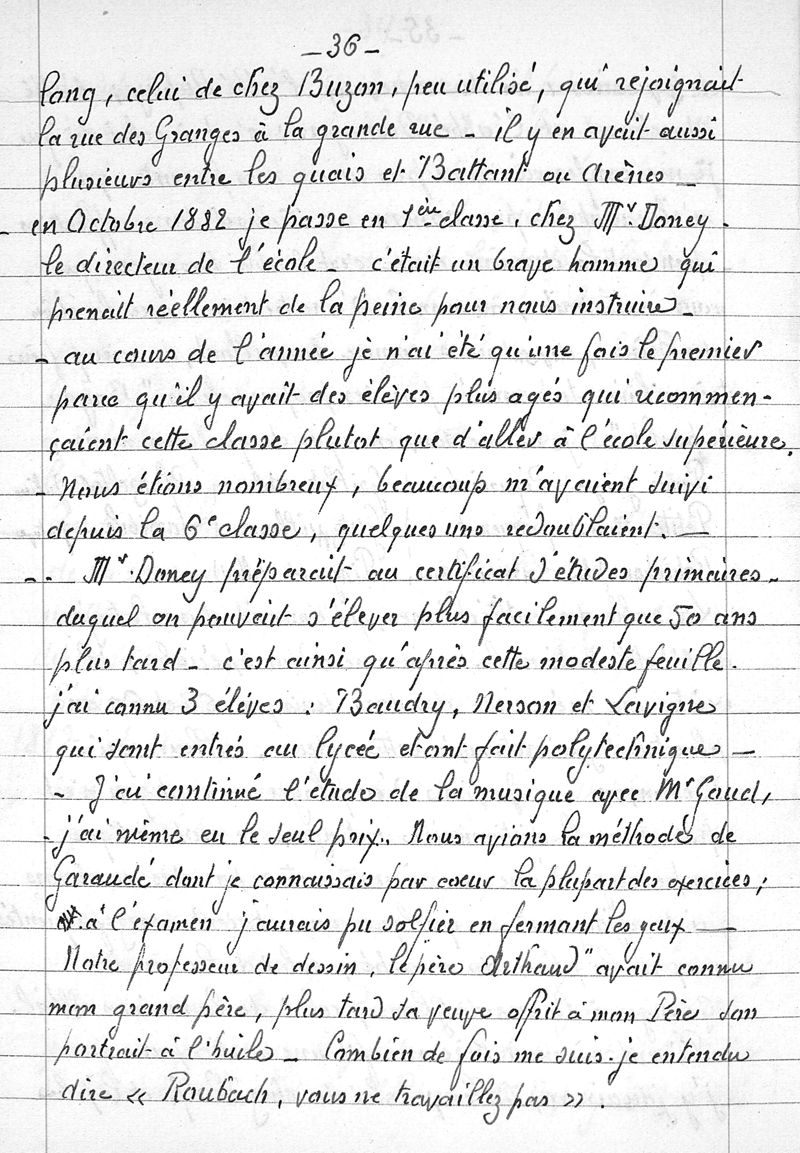 - 36 -
long, celui de chez Buzon, peu utilisé, qui rejoignait
la rue des Granges à la grande rue - il y en avait aussi
plusieurs entre les quais et Battant ou Arènes -
- en Octobre 1882 je passe en 1ère classe, chez Mr. Doney -
le directeur de l'école - c'était un brave homme qui
prenait réellement de la peine pour nous instruire -
- au cours de l'année je n'ai été qu'une fois le premier
parce qu'il y avait des élèves plus agés qui recommen-
çaient cette classe plutot que d'aller à l'école supérieure.
- Nous étions nombreux, beaucoup m'avaient suivi
depuis la 6e classe, quelques uns redoublaient. -
- - Mr. Doney préparait au certificat d'études primaires -
duquel on pouvait s'élever plus facilement que 50 ans
plus tard - c'est ainsi qu'après cette modeste feuille -
j'ai connu 3 élèves : Baudry, Nerson et Lavigne
qui sont entrés au lycée et ont fait polytechnique -
- J'ai continué l'étude de la musique avec Mr Gaud,
- j'ai même eu le seul prix. Nous avions la méthode de
Garaudé dont je connaissais par coeur la plupart des exercices ;
à l'examen j'aurais pu solfier en fermant les yeux -
Notre professeur de dessin, le père Arthaud" avait connu
mon grand père, plus tard sa veuve offrit à mon Père son
portrait à l'huile - Combien de fois me suis-je entendu
dire « Roubach, vous ne travaillez pas ».